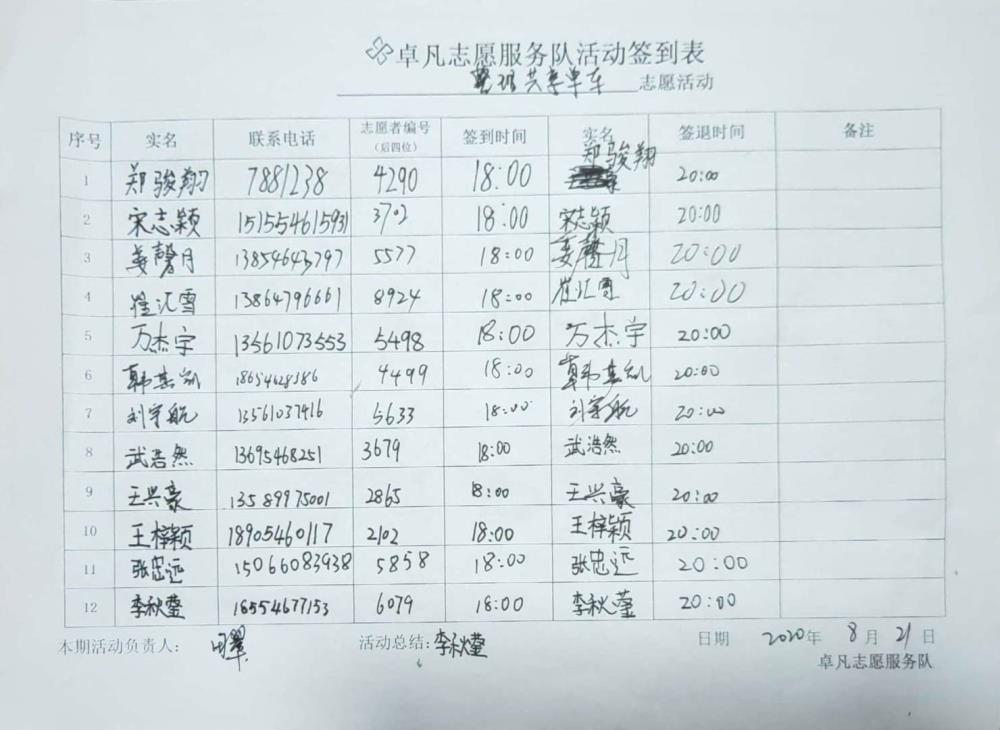 卓凡志愿服务队活动签到表
整理共享单车 志愿活动
序号 实名 联系电话 志愿者编号（后四位） 签到时间 实名 签退时间 备注
1 郑骏翔 7881238 4290 18:00 郑骏翔 20:00
2 宋志颖 15155461593 3702 18:00 宋志颖 20:00
3 姜馨月 13854643797 5577 18:00 姜馨月 20:00
4 崔汇雪 13864796661 8924 18:00 崔汇雪 20:00
5 万杰宇 13561073553 5498 18:00 万杰宇 20:00
6 韩其凯 18654628386 4499 18:00 韩其凯 20:00
7 刘宇航 13561037416 5633 18:00 刘宇航 20:00
8 武浩然 13695468251 3679 18:00 武浩然 20:00
9 王兴豪 13589975001 2865 18:00 王兴豪 20:00
10 王梓颖 18905460117 2102 18:00 王梓颖 20:00
11 张忠远 15066083938 5858 18:00 张忠远 20:00
12 李秋莹 18554677153 6079 18:00 李秋莹 20:00
本期活动负责人： 活动总结：李秋莹 日期 2020年 8月 21日
卓凡志愿服务队